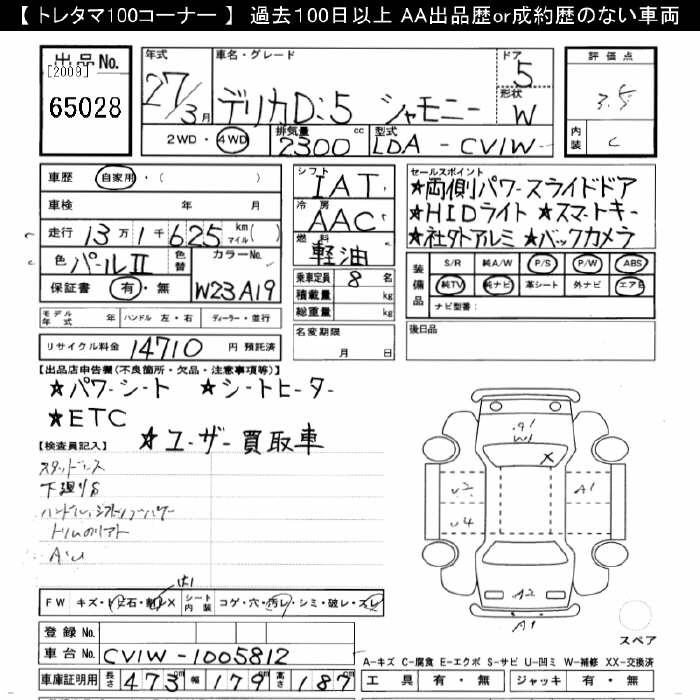 【 トレタマ100コーナー 】 過去100日以上 AA出品歴or成約歴のない車両
出品No.
[2009]
65028
年式
27/3月
車名・グレード
デリカD:5 シャモニー
ドア
5
形状
W
2WD・4WD
排気量
2300cc
型式
LDA - CV1W
評価点
3.5
内装
C
車歴 自家用・( )
車検 年 月
走行 13万1千625 km マイル( )
色 パールⅡ 色替 カラーNo. W23A19
保証書 有・無
シフト
IAT
冷房
AAC
燃料
軽油
乗車定員 8名
積載量 kg
総重量 kg
セールスポイント
★両側パワースライドドア
★HIDライト ★スマートキー
★社外アルミ ★バックカメラ
装備品
S/R 純A/W P/S P/W ABS
純TV 純ナビ 革シート 外ナビ エアB
ナビ型番:
モデル年式 年 ハンドル 左・右 ディーラー・並行
リサイクル料金 14710 円 預託済
名変期限
月 日
後日品
【出品店申告欄(不良箇所・欠品・注意事項等)】
★パワーシート ★シートヒーター
★ETC
★ユーザー買取車
【検査員記入】
下廻りS
A1
W1
X
U2
A1
U4
A2
A1
スペア
FW キズ・ 石・ X シート内装 コゲ・穴・汚レ・シミ・破レ・スレ
登録No.
車台No. CV1W-1005812
車庫証明用 長さ 473cm 幅 179cm 高さ 187cm
A-キズ C-腐食 E-エクボ S-サビ U-凹ミ W-補修 XX-交換済
工具 有・無 ジャッキ 有・無